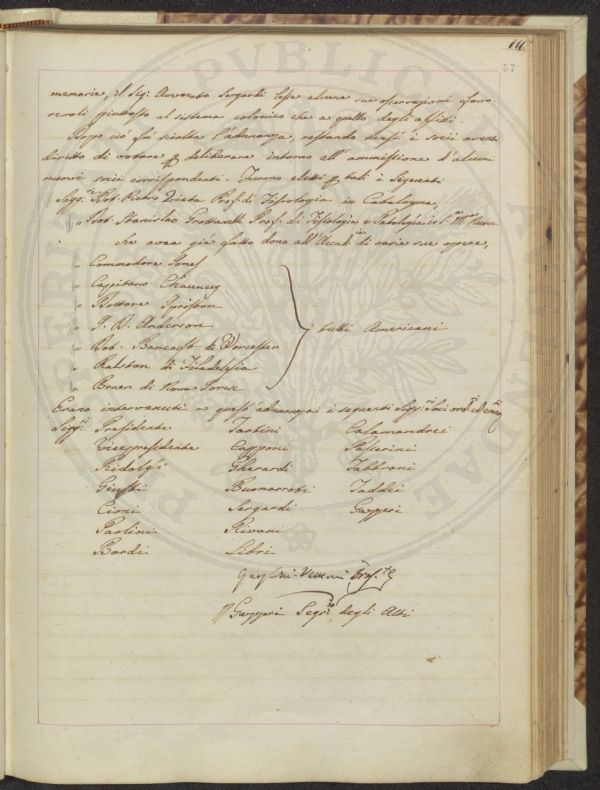 111
57
memorie, il Sig. Avvocato Sergardi lesse alcune sue osservazioni favo
revoli piuttosto al sistema colonico che a quello degli affitti.
Dopo ciò fu sciolta l'adunanza, restando tutti i socii aventi
diritto di votare deliberare intorno all'ammissione d'alcuni
nuovi socii corrispondenti. Furono eletti tali i seguenti
Sigg.ri Dot. Pietro Prof. di Fisiologia in Catalogna,
" Dot. Stanislao Prof. di Fisiologia e Patologia in S.ta M.a Nuova
che avea già fatto dono all'Accad. di varie sue opere,
" Commodoro Jones
" Capitano Chauncey
" Dottore
" Anderson
" Dot. Bancroft di Worcester
" Ralston di Filadelfia
" Bruen di Nova Jorck
tutti Americani
Erano intervenuti a quest'adunanza i seguenti Sigg.ri Soci ord.
Sigg.ri Presidente Tartini Calamandrei
Vicepresidente Capponi Passerini
Ridolfi Gherardi Fabbroni
Giusti Buonarroti Taddei
Cioni Sergardi Gazzeri
Paolini Rivani
Bardi Libri
Pres.te
Gazzeri Segr.rio degli Atti